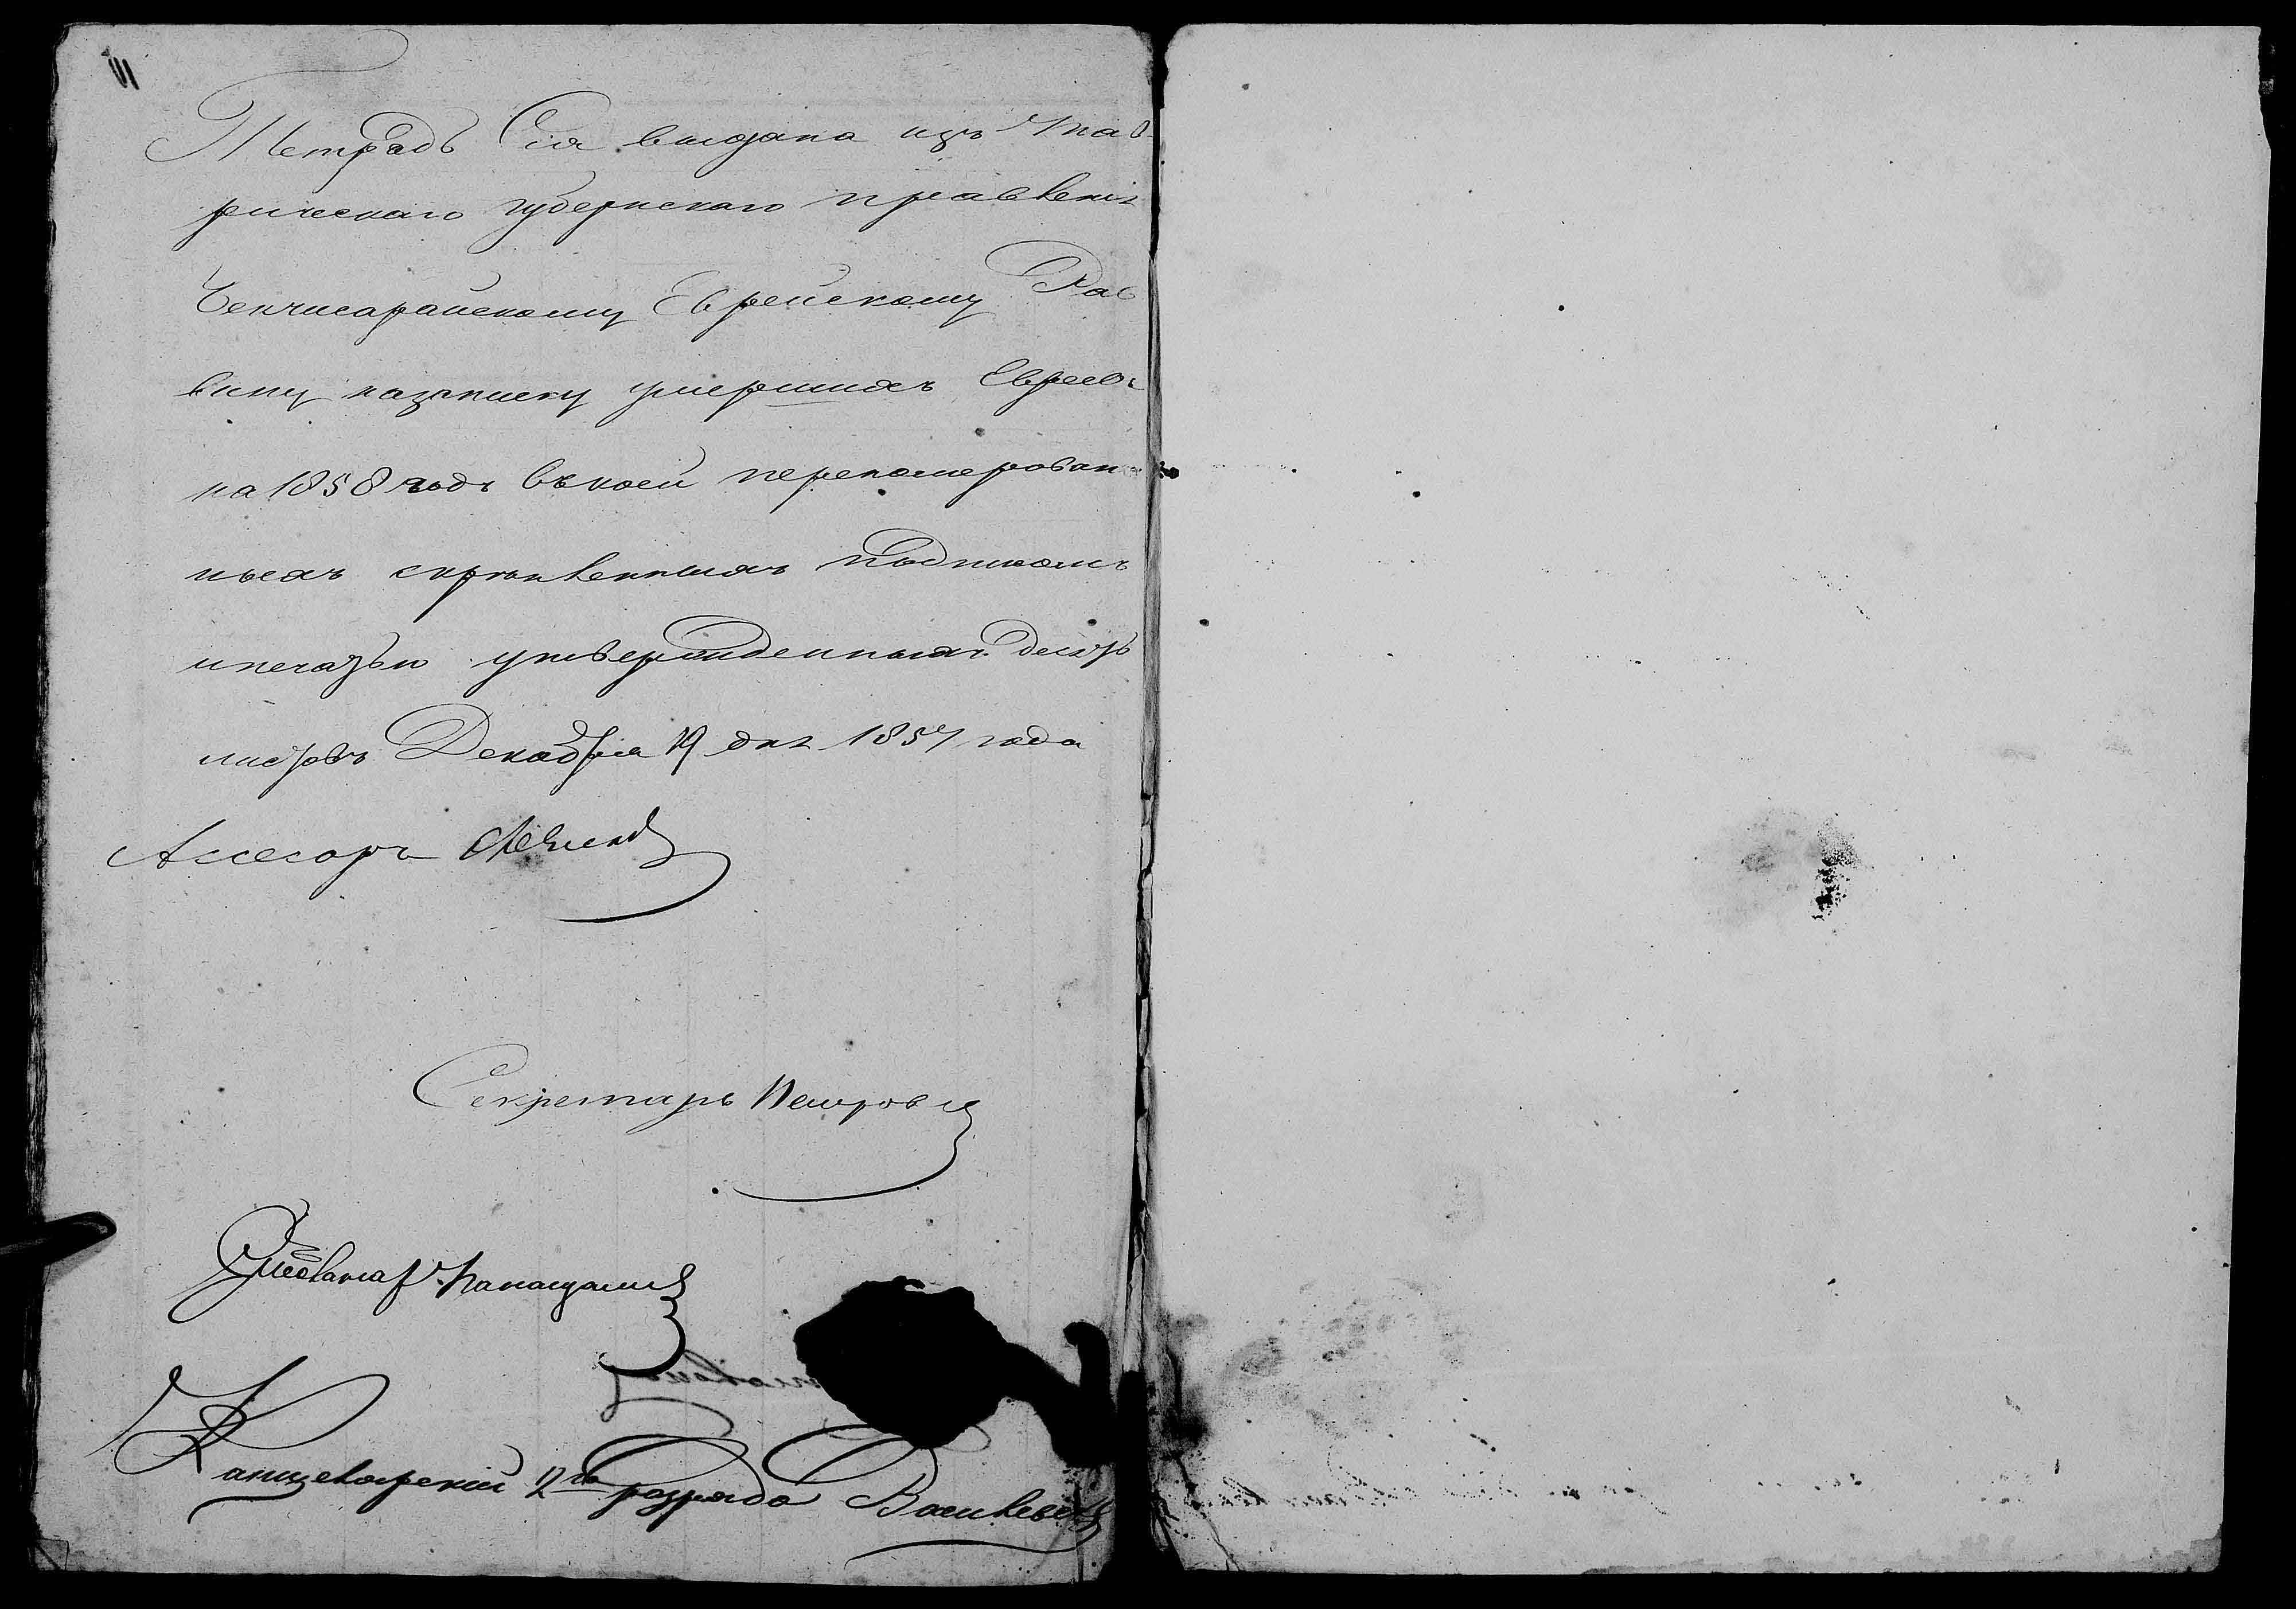 Тетрадь Сія выдана изъ Тав-
рическаго губернскаго правленія
Бехчисарайскому Еврейскому Рав
вину назаписку умершихъ Евреевъ
на 1858 годъ въ коей переномерован
ныхъ скрѣпленныхъ подписомъ
ипечатью утвержденныхъ десять
листовъ Декабря 19 дня 1857 года
Ассесоръ
Секретарь Петровъ
Канцелярскій 2го разряда Василевскій